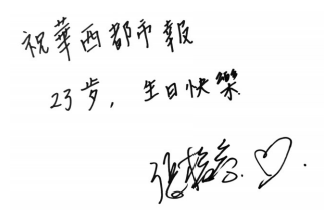 祝華西都市報
23岁，生日快樂